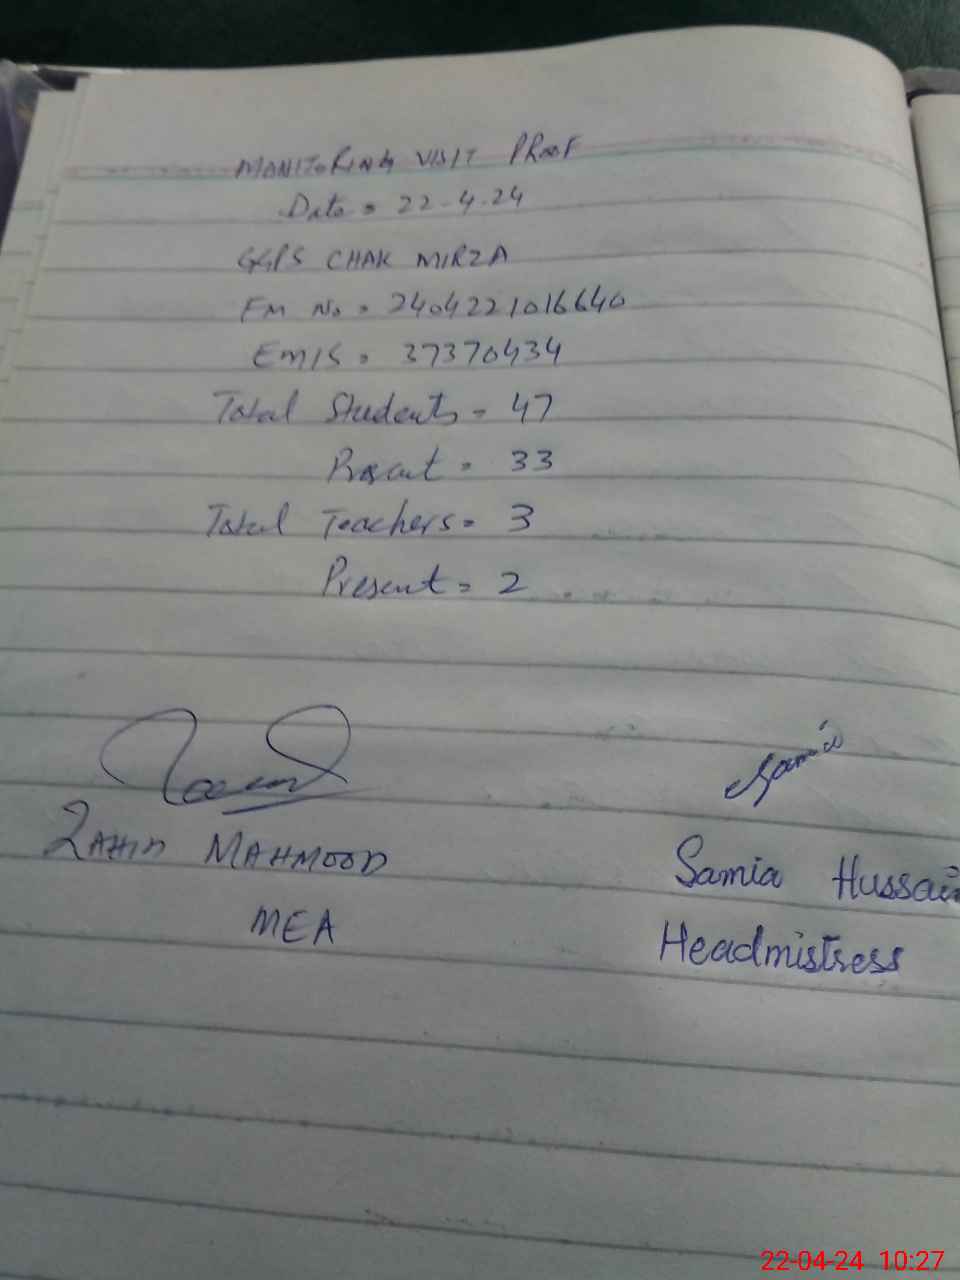 MONITORING VISIT PROOF
Date = 22-4-24
GGPS CHAK MIRZA
FM No = 2404221016640
EMIS = 37370434
Total Students = 47
Present = 33
Total Teachers = 3
Present = 2
Samia
ZAHID MAHMOOD
Samia Hussain
MEA
Headmistress
22-04-24 10:27